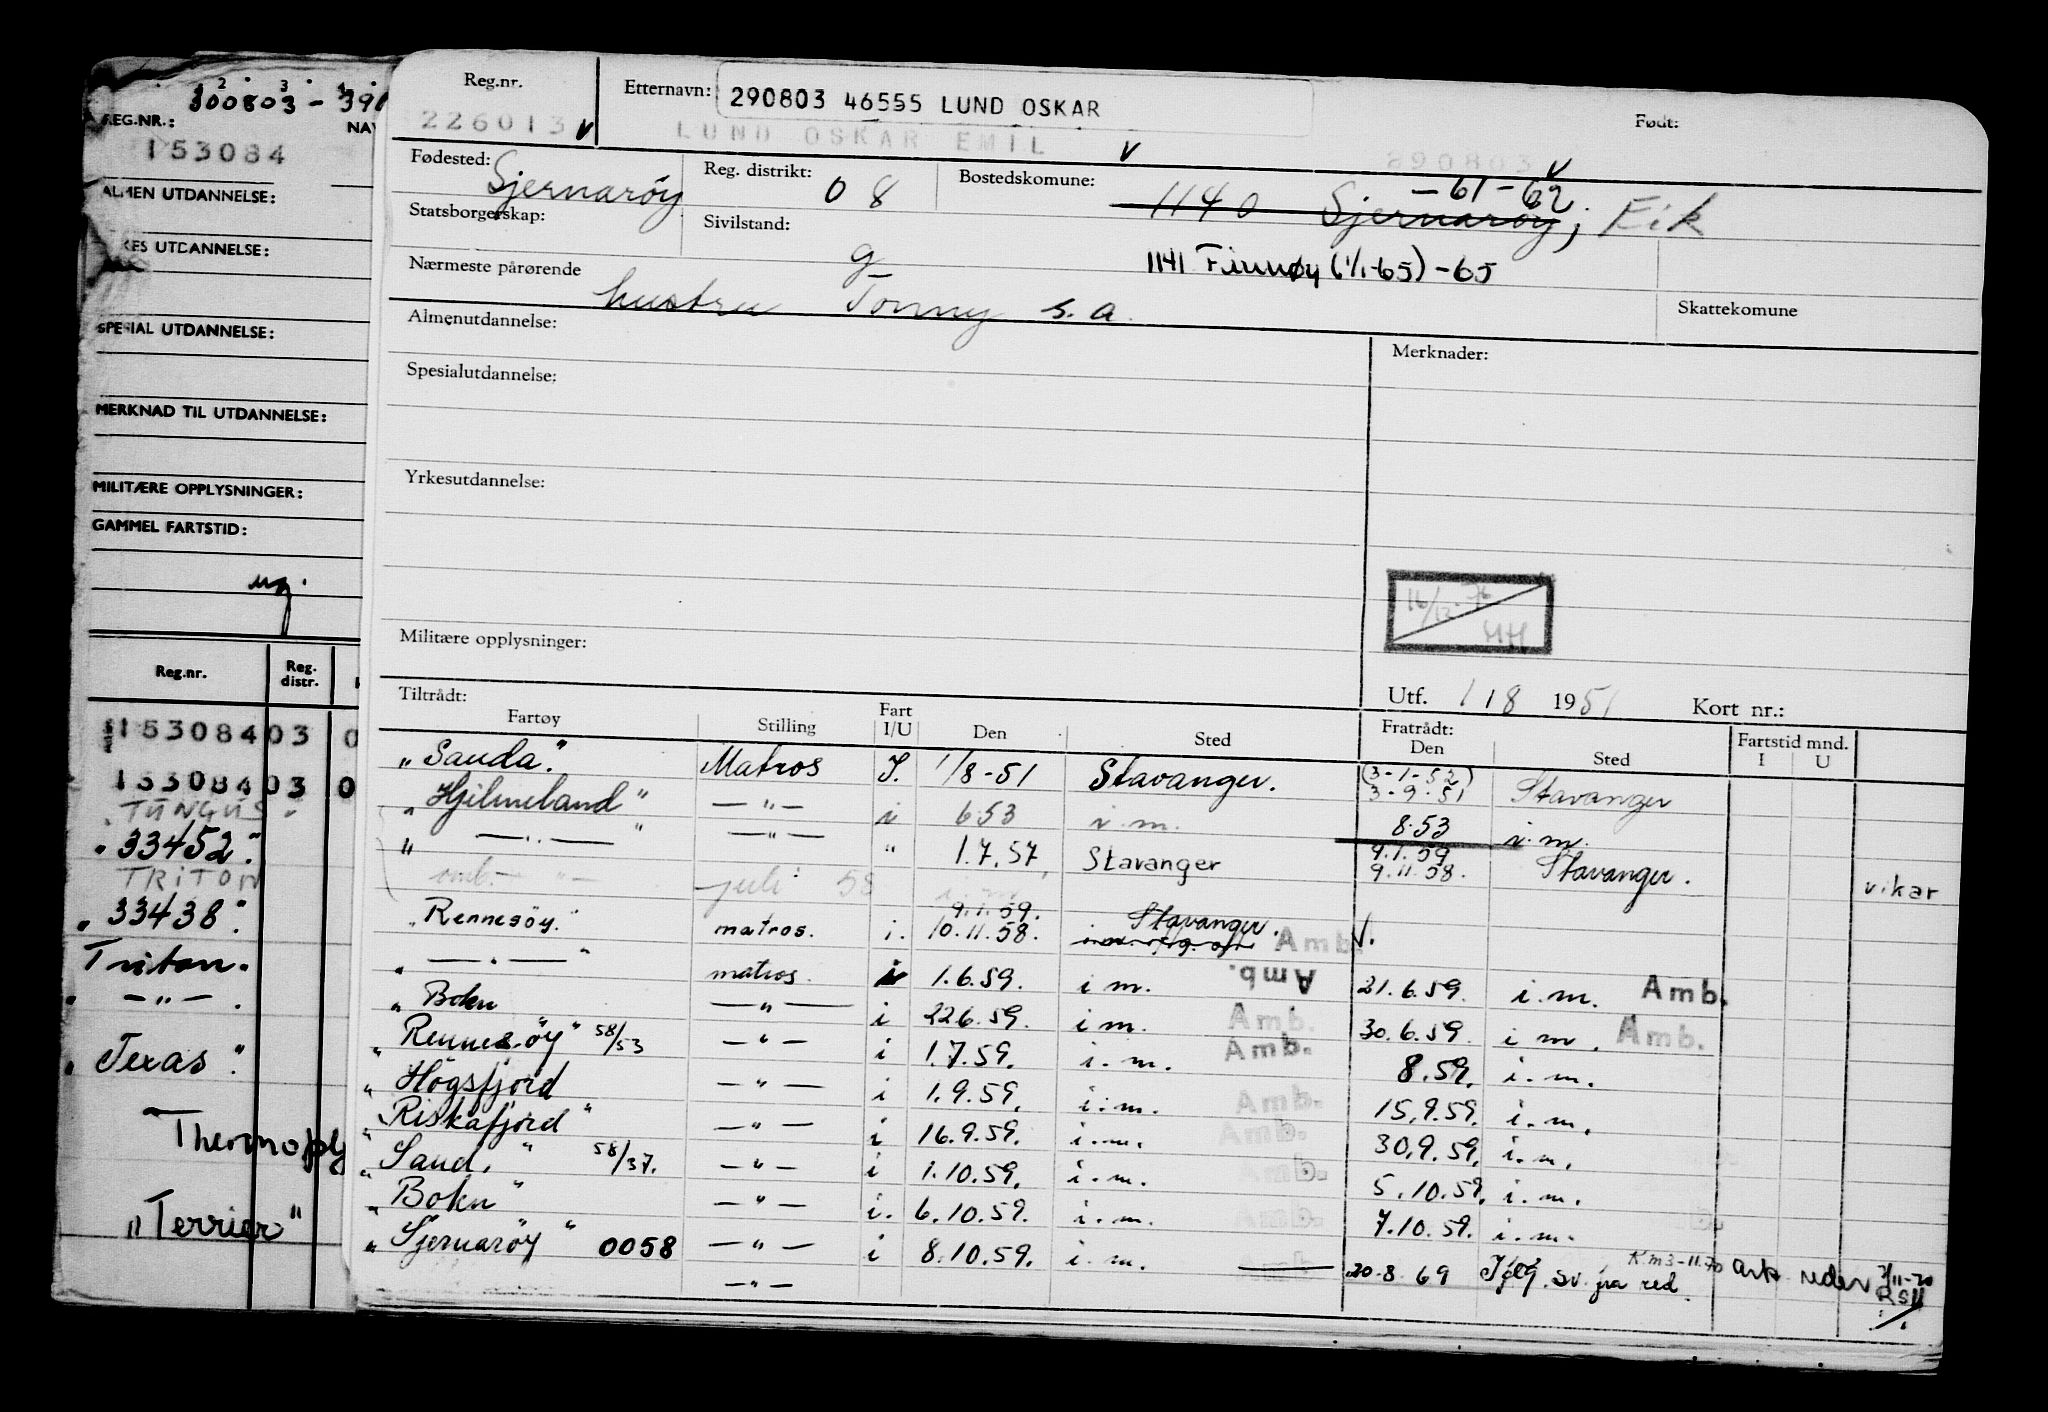 300803-
REG.NR.:
NAV
153084
ALMEN UTDANNELSE:
KES UTDANNELSE:
SPESIAL UTDANNELSE:
MERKNAD TIL UTDANNELSE:
MILITÆRE OPPLYSNINGER:
GAMMEL FARTSTID:
ug.
Reg.nr. Reg. distr.
153084 03 0
153084 03 0
TUNGUS
"33452"
TRITON
"33438"
Triton.
" — " — .
"Texas"
Thermopyl
"Terrier"
Reg.nr. Etternavn: 290803 46555 LUND OSKAR Født:
226013 v LUND OSKAR EMIL v 290803 v
Fødested: Sjernarøy Reg. distrikt: 08 Bostedskomune: 1140 Sjernarøy, -61-62 Eik
Statsborgerskap: Sivilstand: g 1141 Finnøy (1/1-65) -65
Nærmeste pårørende hustru Tonny s.a. Skattekomune
Almenutdannelse: Merknader:
Spesialutdannelse:
Yrkesutdannelse:
16/12-76
HH
Militære opplysninger:
Utf. 1 / 8 1951 Kort nr.:
Tiltrådt: Fratrådt: Fartstid mnd.
Fartøy Stilling Fart I/U Den Sted Den Sted I U
"Sauda" Matros I. 1/8-51 Stavanger. (3-1-52) 3-9-51 Stavanger
"Hjilmeland" — " — i 653 i.m. 8.53 i.m.
" — " — " — " — " 1.7.57, Stavanger 9.1.59 9.11.58. Stavanger. vikar
omb. — " — juli 58 i.m.
"Rennesöy." matros. i. 9.1.59. 10.11.58. Stavanger. Amb.
" — " — " matros. i 1.6.59. i m. Amb. 21.6.59. i.m. Amb.
"Bokn — " — i 226.59. i m. Amb. 30.6.59. i m. Amb.
"Rennesöy" 58/53 — " — i 1.7.59. i.m. Amb. 8.59. i.m.
"Högsfjord — " — i 1.9.59. i.m. Amb. 15.9.59. i.m.
"Riskafjord" — " — i 16.9.59. i.m. Amb. 30.9.59. i.m.
"Sand." 58/37. — " — i 1.10.59. i.m. Amb. 5.10.59. i.m.
"Bokn" — " — i. 6.10.59. i.m. Amb. 7.10.59. i.m.
"Sjernaröy" 0058 — " — i 8.10.59. i.m. Amb. 20.8.69 sv. fra red. Km3-11.70 3/11-70
— " —